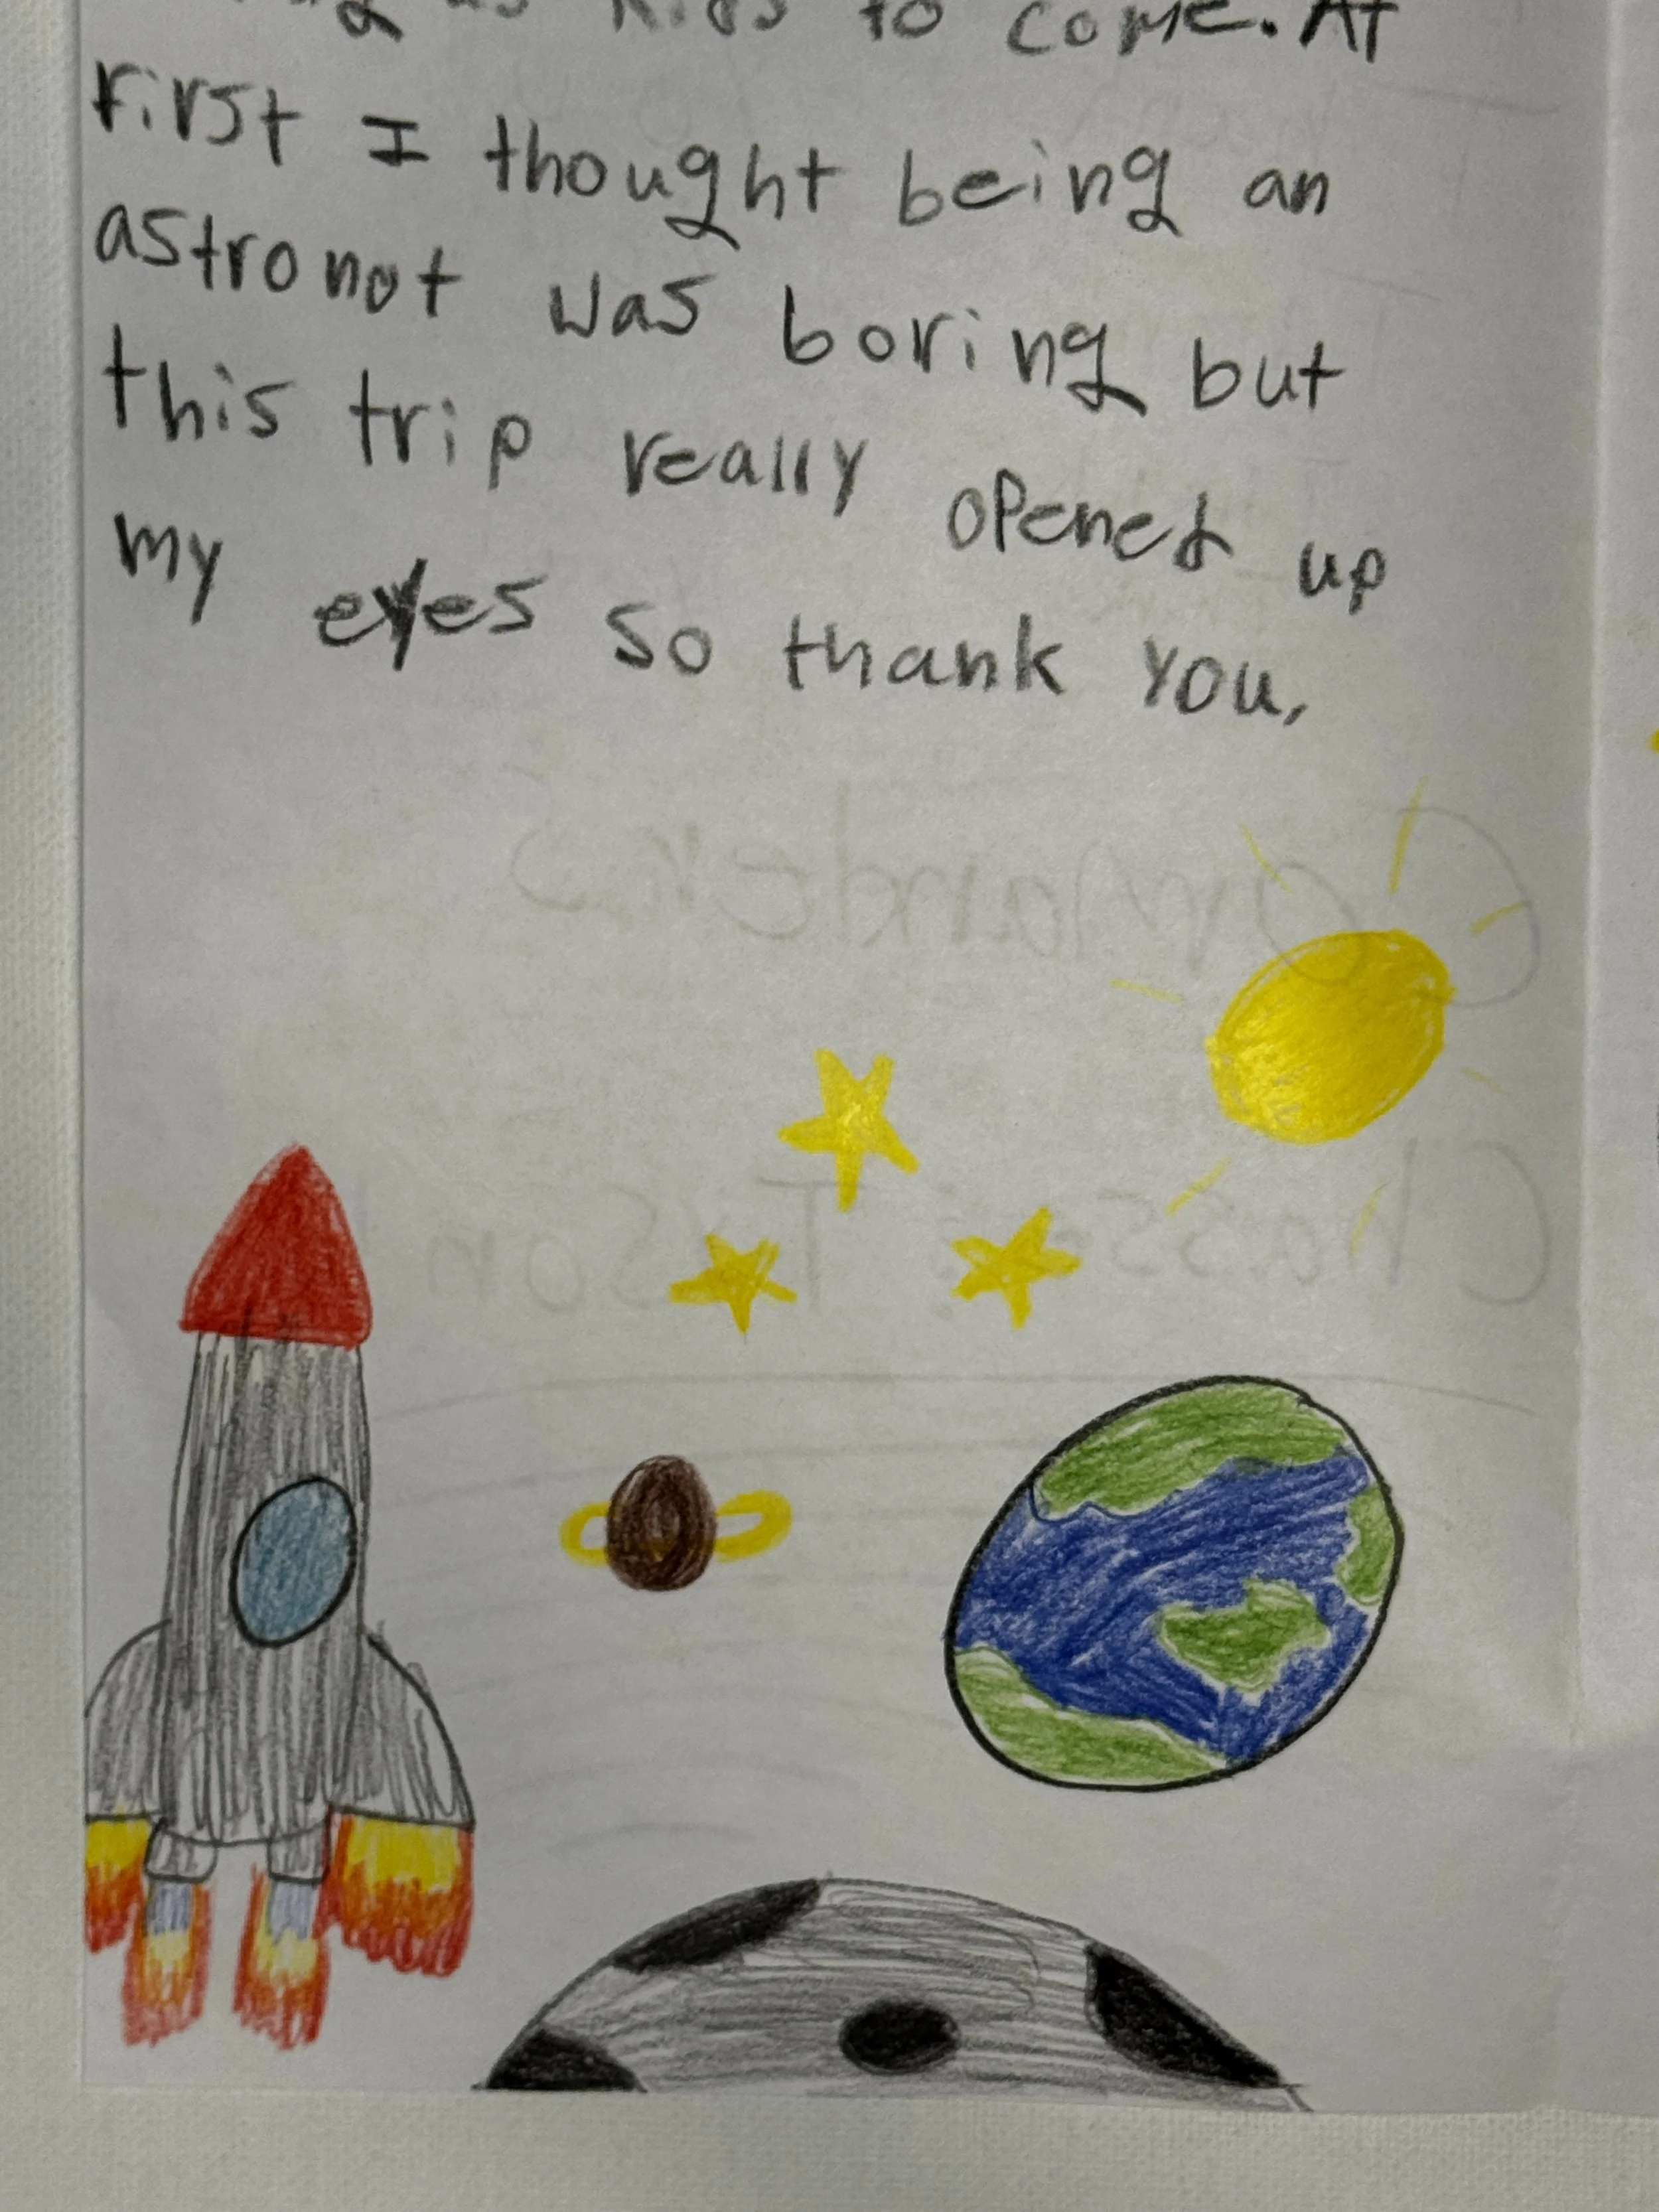 us kids to come. At
first I thought being an
astronot was boring but
this trip really opened up
my eyes so thank you,